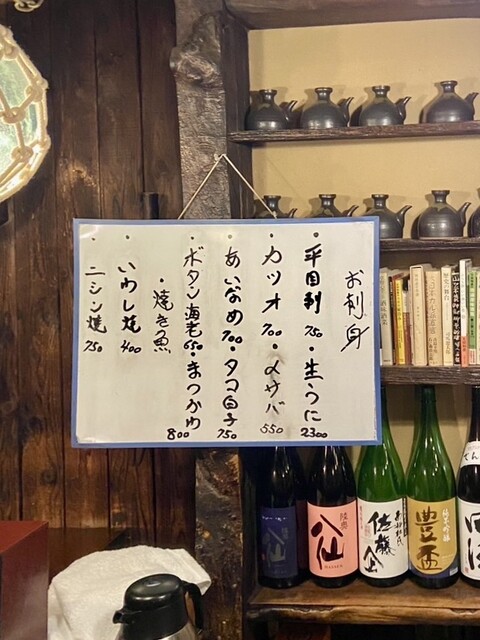 お刺身
・平目刺 750 ・生うに 2300
・カツオ 700 ・〆サバ 550
・あいなめ 700 ・タコ白子 750
・ボタン海老 650 ・まつかわ 800
・焼き魚
・いわし焼 400
・ニシン焼 750
八仙
陸奥
八仙
HASSEN
佐藤企
純米吟醸
豊盃
田酒